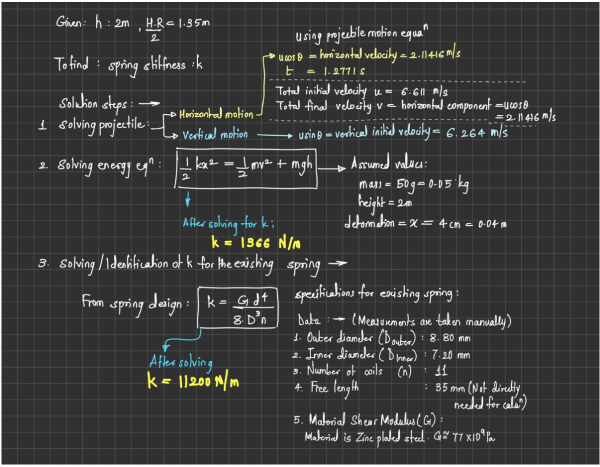 Given: h : 2m , H.R/2 = 1.35m
To find : spring stiffness : k
using projectile motion equaⁿ
ucosθ = horizontal velocity = 2.11416 m/s
t = 1.2771 s
Total initial velocity u = 6.611 m/s
Total final velocity v = horizontal component = ucosθ
= 2.11416 m/s
Solution steps : →
1 Solving projectile: → Horizontal motion
→ Vertical motion → usinθ = vertical initial velocity = 6.264 m/s
2. Solving energy eqⁿ : 1/2 kx² = 1/2 mv² + mgh → Assumed values:
mass = 50g = 0.05 kg
height = 2m
deformation = x = 4 cm = 0.04 m
After solving for k :
k = 1366 N/m
3. Solving / Identification of k for the existing spring →
From spring design : k = G d⁴ / 8 D³ n
After solving
k = 11200 N/m
specifications for existing spring :
Data : → (Measurements are taken manually)
1. Outer diameter (Douter) : 8.80 mm
2. Inner diameter (Dinner) : 7.20 mm
3. Number of coils (n) : 11
4. Free length : 35 mm (Not directly
needed for calcⁿ)
5. Material Shear Modulus (G) :
Material is Zinc plated steel. G ≈ 77 x10⁹ Pa